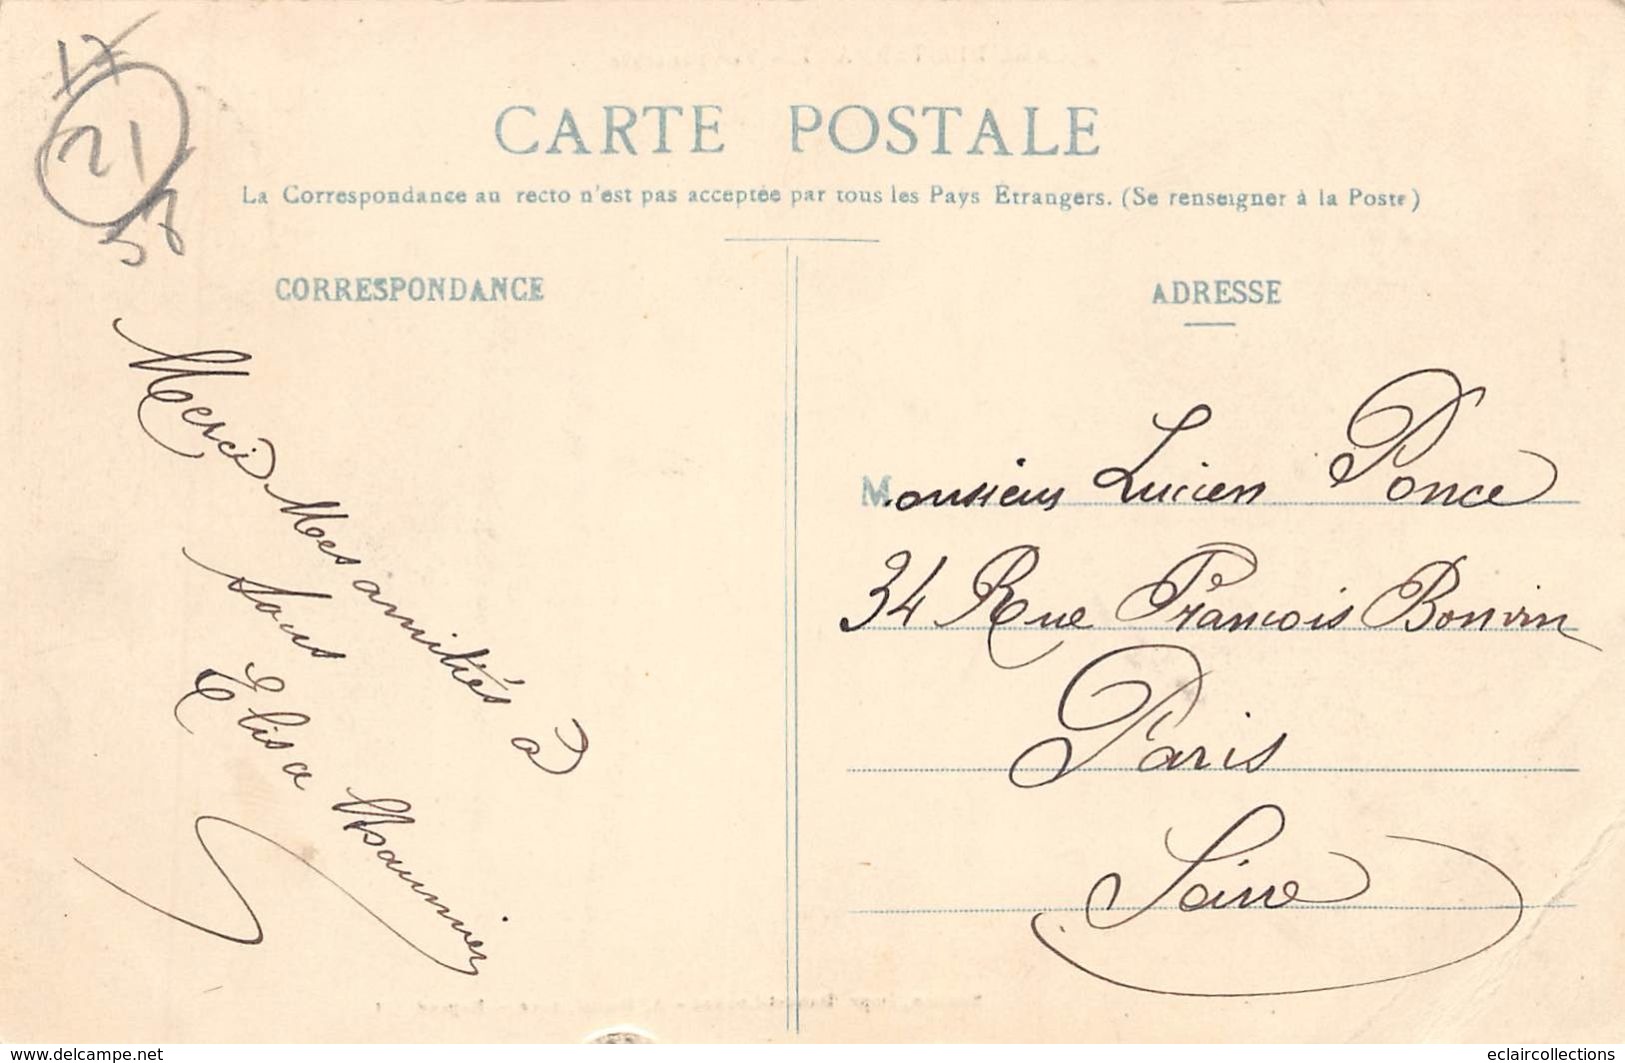 17
21
CARTE POSTALE
La Correspondance au recto n'est pas acceptée par tous les Pays Étrangers. (Se renseigner à la Poste)
CORRESPONDANCE
Merci Mes amitiés à
tous
Elisa Maumier
ADRESSE
Monsieur Lucien Ponce
34 Rue François Bonvin
Paris
Seine
www.delcampe.net
eclaircollections